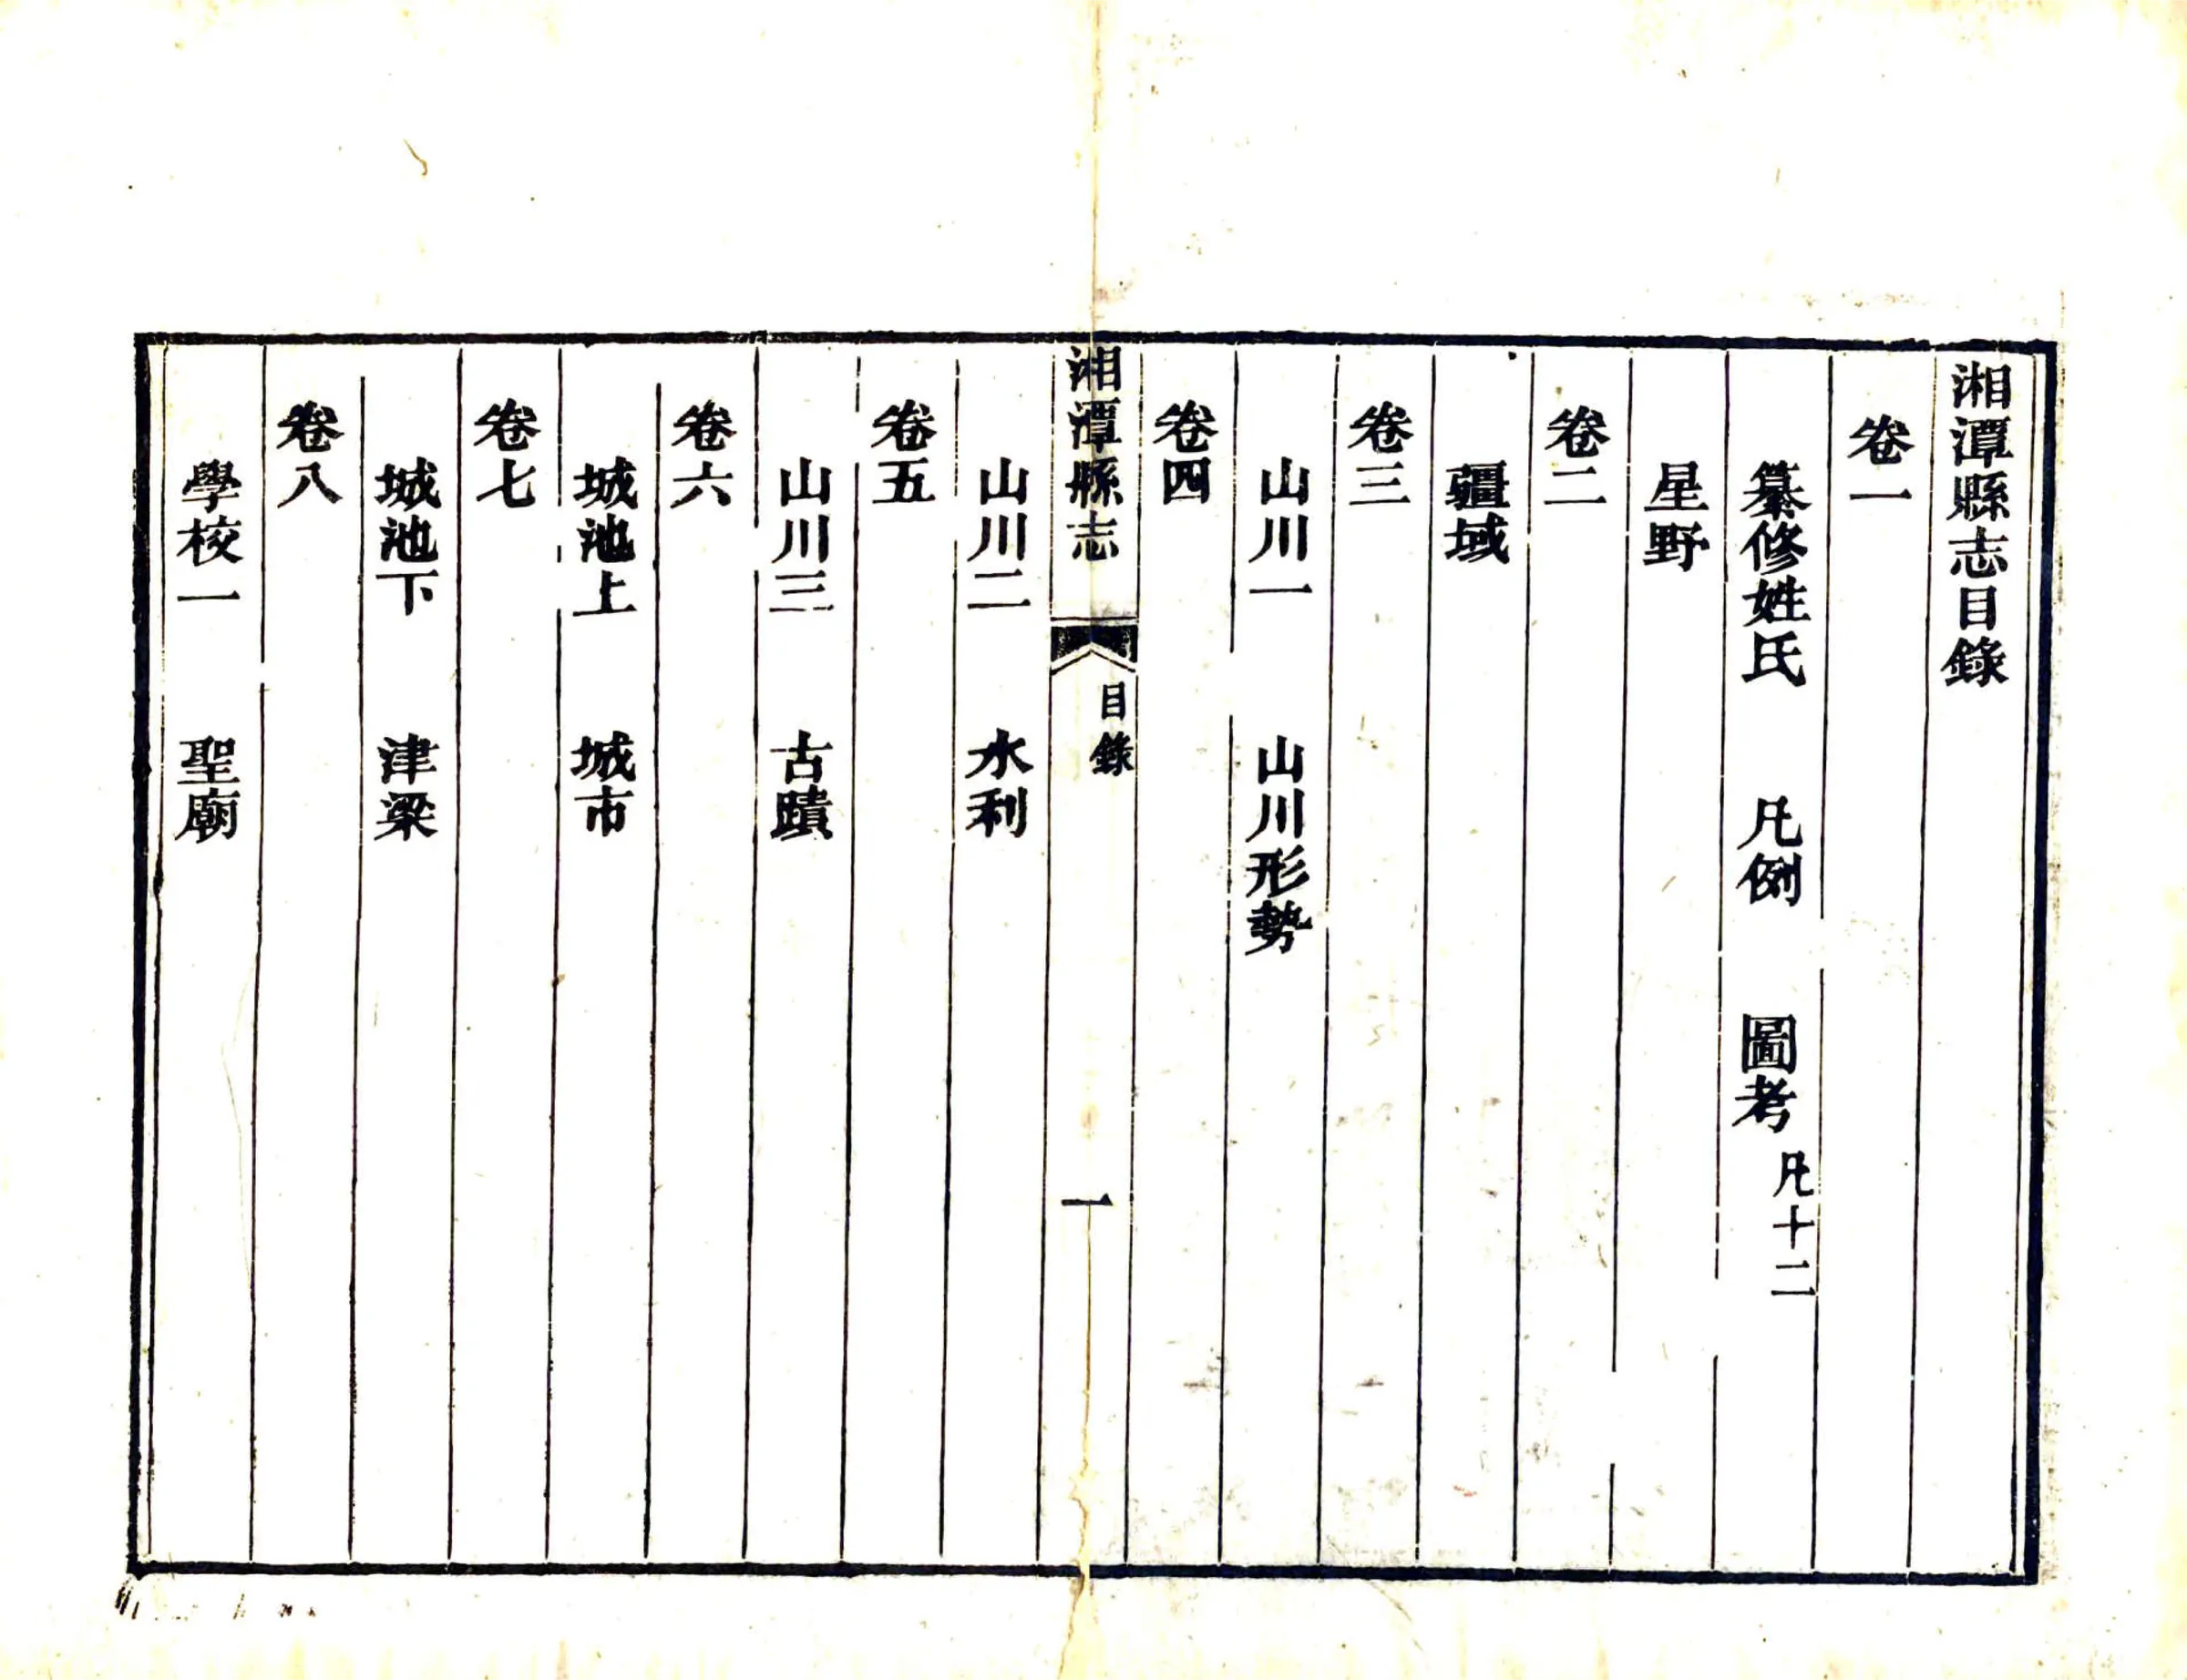 湘潭縣志目錄
卷一
纂修姓氏　凡例　圖考凡十二
星野
卷二
疆域
卷三
山川一　山川形勢
卷四
湘潭縣志　目錄　一
山川二　水利
卷五
山川三　古蹟
卷六
城池上　城市
卷七
城池下　津梁
卷八
學校一　聖廟